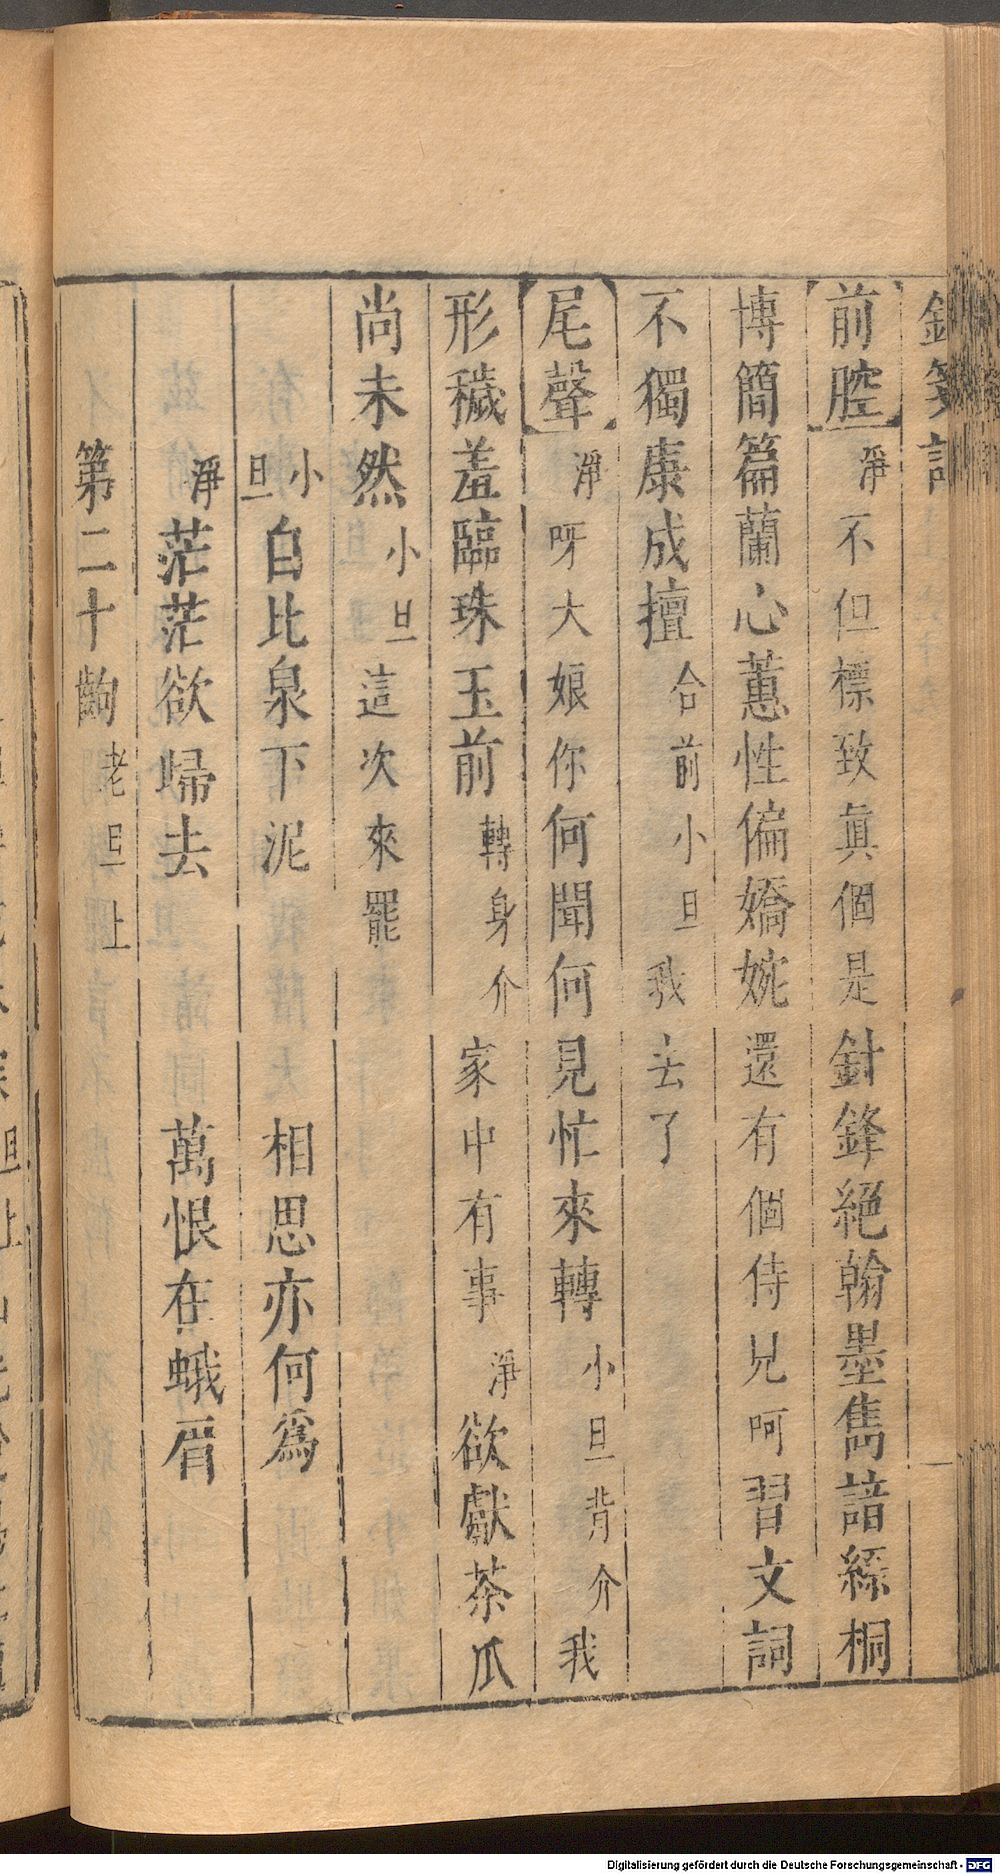 前腔淨不但標致眞個是針鋒絕翰墨雋諳絲桐
博簡篇蘭心蕙性偏嬌婉還有個侍兒呵習文詞
不獨康成擅合前小旦我去了
尾聲淨呀大娘你何聞何見忙來轉小旦背介我
形穢羞臨珠玉前轉身介家中有事淨欲獻茶瓜
尚未然小旦這次來罷
小旦自比泉下泥 相思亦何爲
淨茫茫欲歸去 萬恨在蛾眉
第二十齣老旦上
Digitalisierung gefördert durch die Deutsche Forschungsgemeinschaft - DFG